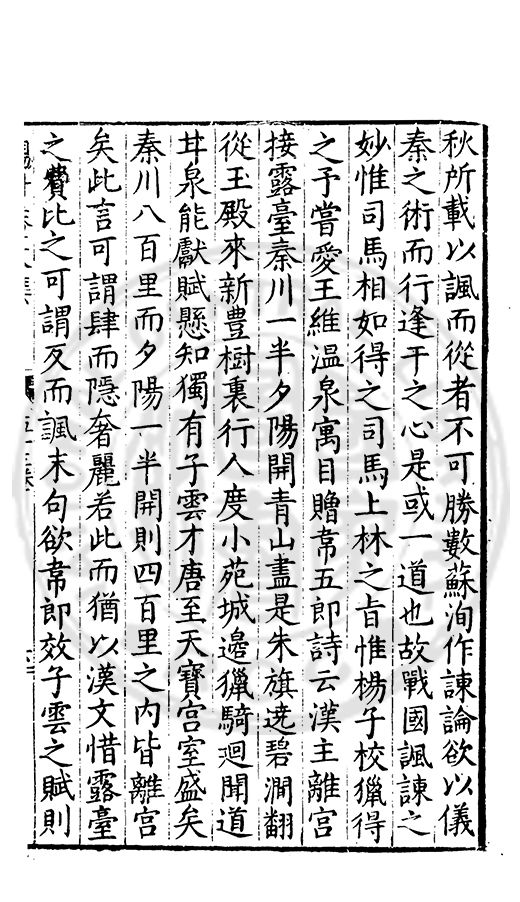 秋所載以諷而從者不可勝數蘇洵作諫論欲以儀
秦之術而行逢干之心是或一道也故戰國諷諫之
妙惟司馬相如得之司馬上林之旨惟楊子校獵得
之予嘗愛王維温泉寓目贈韋五郎詩云漢主離宫
接露臺秦川一半夕陽開青山盡是朱旗遶碧澗翻
從玉殿來新豊樹裏行人度小苑城邊獵騎廻聞道
甘泉能獻賦懸知獨有子雲才唐至天寶宫室盛矣
秦川八百里而夕陽一半開則四百里之内皆離宫
矣此言可謂肆而隱奢麗若此而猶以漢文惜露臺
之費比之可謂反而諷末句欲韋郎效子雲之賦則